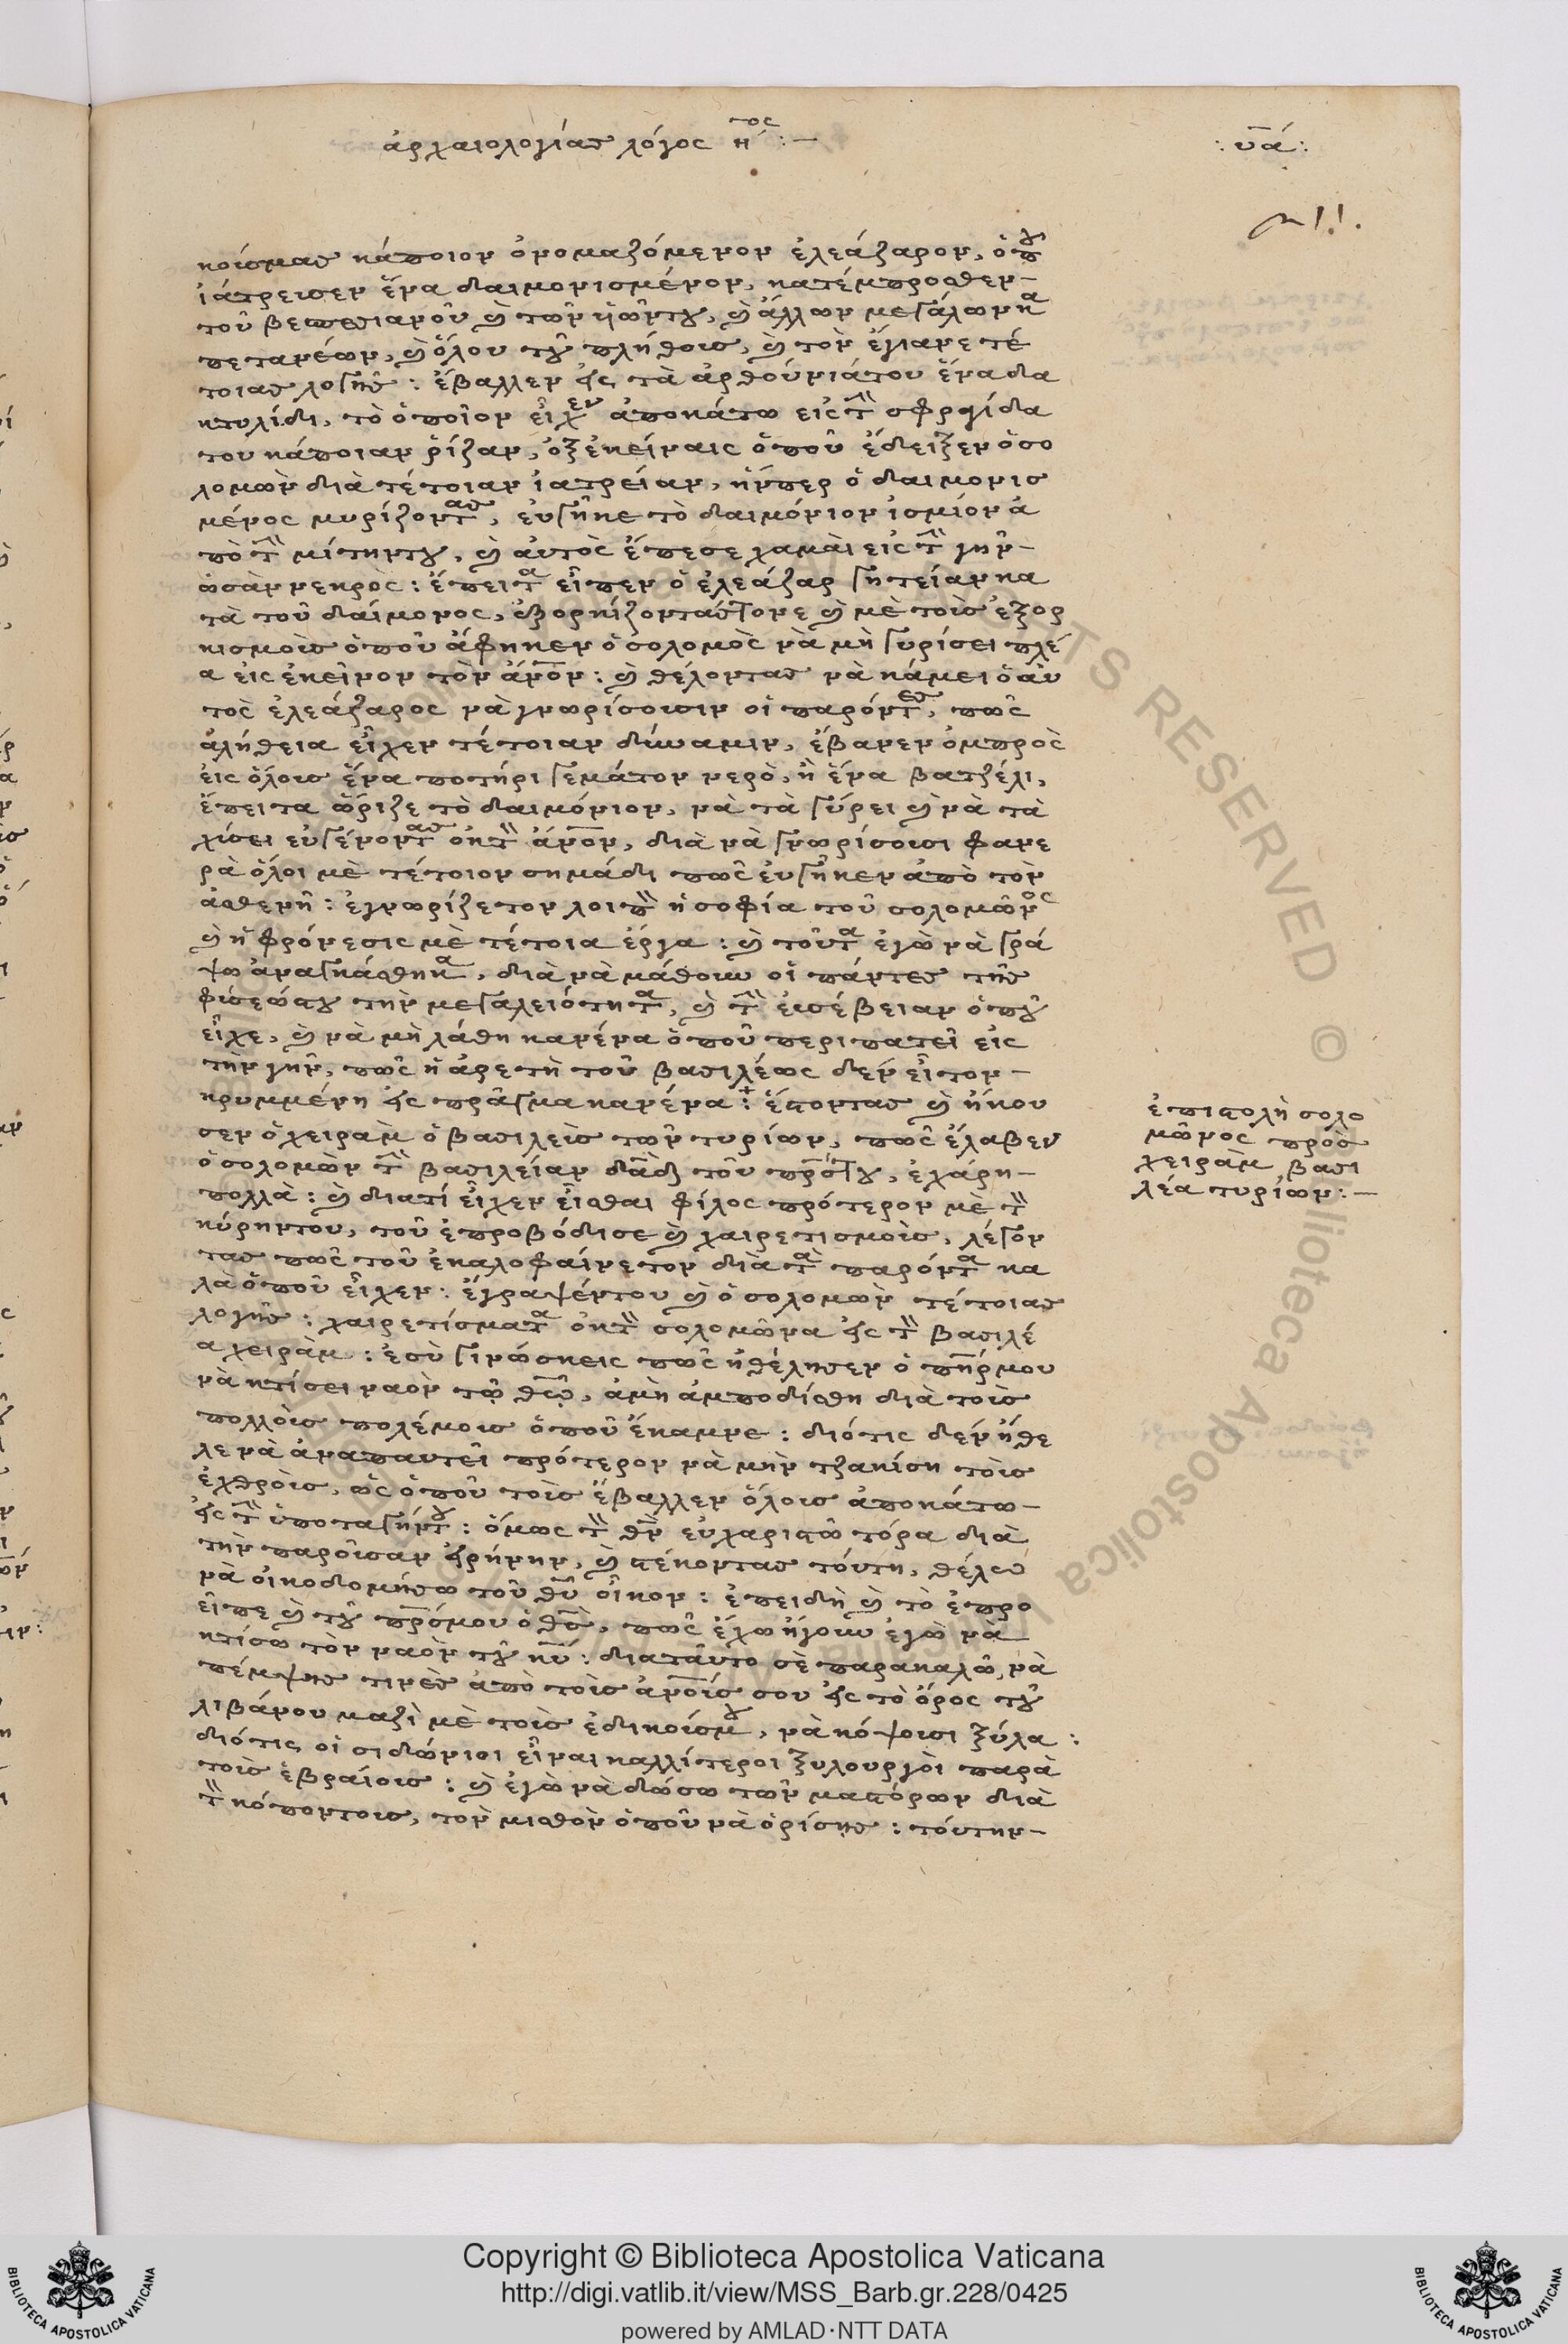 ἀρχαιολογίας λόγος η^τος :—
: υ̅ά :
411.
κοίσμας κάποιον ὀνομαζόμενον ἐλεάζαρον, ὁποῦ
ἰάτρεισεν ἕνα δαιμονισμένον, κατέμπροσθεν-
τοῦ βεσπεσιανοῦ καὶ τῶν ἡῶντου, καὶ ἄλλων μεγάλων κα
πετανέων, καὶ ὅλου τοῦ πλήθοις, καὶ τὸν ἔγιανε τέ
τοιας λογῆς : ἔβαλλεν εἰς τὰ ἀρθούνιάτου ἕνα δα
κτυλίδι, τὸ ὁποῖον εἶχεν ἀποκάτω εἰς τὴν σφργίδα
του κάποιαν ῥίζαν, ὀξεκείναις ὁποῦ ἔδειξεν ὁ σο
λομὼν διὰ τέτοιαν ἰατρείαν, ἥνπερ ὁ δαιμονισ
μένος μυρίζοντας, εὐγῆκε τὸ δαιμόνιον ἰσμιὸν ἀ
πὸ τὴν μίτηντου, καὶ αὐτὸς ἔπεσε χαμαὶ εἰς τὴν γῆν-
ὡσὰν νεκρὸς : ἔπειτα εἶπεν ὁ ἐλεάζαρ γητείαν κα
τὰ τοῦ δαίμονος, ἐξορκίζοντάςτονε καὶ μὲ τοὶς ἐξορ
κισμοὶς ὁποῦ ἄφηκεν ὁ σολομὸς νὰ μὴ γυρίσει πλέ
α εἰς ἐκεῖνον τὸν ἄν̅ον : καὶ θέλοντας νὰ κάμει ὁ αὐ
τὸς ἐλεάζαρος νὰ γνωρίσουσιν οἱ παρόντες, πῶς
ἀλήθεια εἶχεν τέτοιαν δύναμιν, ἔβανεν ὀμπρὸς
εἰς ὅλοις ἕνα ποτήρι γεμάτον νερὸ, ἢ ἕνα βατζέλι,
ἔπειτα ὥριζε τὸ δαιμόνιον, νὰ τὰ γύρει καὶ νὰ τὰ
χύσει εὐγένοντας ὀκ τὸν ἄν̅ον, διὰ νὰ γνωρίσουσι φανε
ρὰ ὅλοι μὲ τέτοιον σημάδι πῶς ἐυγῆκεν ἀπὸ τὸν
ἀσθενῆ : ἐγνωρίζετον λοιπὸν ἡ σοφία τοῦ σολομῶνος
καὶ ἡ φρόνεσις μὲ τέτοια ἔργα : καὶ τοῦτα ἐγὼ νὰ γρά
ψω ἀναγκάσθηκα, διὰ νὰ μάθουν οἱ πάντες τῆς
φίσεώςτου τὴν μεγαλειότητα, καὶ τὴν εἰσέβειαν ὁποῦ
εἶχε, καὶ νὰ μὴ λάθη κανένα ὁποῦ περιπατεῖ εἰς
τὴν γῆν, πῶς ἡ ἀρετὴ τοῦ βασιλέως δὲν εἶτον-
κρυμμένη εἰς πρᾶγμα κανένα : ἔστοντας καὶ ἤκου
σεν ὁ χειρὰμ ὁ βασιλεὶς τῶν τυρίων, πῶς ἔλαβεν
ὁ σολομὼν τὴν βασιλείαν δα̅δ τοῦ πρ̅όςτου, ἐχάρη-
πολλὰ : καὶ διατί εἶχεν εἶσθαι φίλος πρότερον μὲ τὸν
κύρηντου, τοῦ ἐπροβόδισε καὶ χαιρετισμοὶς, λέγον
τας πῶς τοῦ ἐκαλοφαίνετον διὰ τὰ παρόντα κα
λὰ ὁποῦ εἶχεν : ἔγραψέντου καὶ ὁ σολομὼν τέτοιας
λογῆς : χαιρετίσματα ὀκ τὸν σολομῶνα εἰς τὸν βασιλέ
α χειρὰμ : ἐσὺ γινώσκεις πῶς ἠθέλησεν ὁ π̅ήρμου
νὰ κτίσει ναὸν τῷ θ̅ῷ, ἀμὴ ἀμποδίσθη διὰ τοὶς
πολλοὶς πολέμοις ὁποῦ ἔκαμνε : διότις δὲν ἤθε
λε νὰ ἀναπαυτεῖ πρότερον νὰ μὴν τζακίση τοὶς
ἐχθροὶς, ὡς ὁποῦ τοὶς ἔβαλλεν ὅλοις ἀποκάτω-
εἰς τὴν ὑποταγήντου : ὅμως τὸν θ̅ν εὐχαριστῶ τόρα διὰ
τὴν παροῖσαν εἰρήνην, καὶ στέκοντας τόυτη, θέλω
νὰ οἰκοδομήσω τοῦ θ̅υ οἶκον : ἐπειδὴ καὶ τὸ ἐπρο
εῖπε καὶ τοῦ πρ̅όςμου ὁ θ̅ς, πῶς ἔχω ἤγουν ἐγὼ νὰ
κτίσω τὸν ναὸν τοῦ κ̅υ : διαταῦτο σὲ παρακαλῶ, νὰ
πέμψης τινὲς ἀπὸ τοὶς ἀν̅οίς σου εἰς τὸ ὄρος τοῦ
λιβάνου μαζὶ μὲ τοὶς ἐδικοίςμου, νὰ κόψοισι ξύλα :
διότις οἱ σιδώνιοι εἶναι καλλίτεροι ξυλουργοὶ παρὰ
τοὶς ἑβραίοις : καὶ ἐγὼ νὰ δώσω τῶν μαστόρων διὰ
τὸν κόποντοις, τὸν μισθὸν ὁποῦ νὰ ὁρίσης : τόυτην-
ἐπιστολὴ σολο
μῶνος πρὸς
χειρὰμ βασι
λέα τυρίων :—
Copyright © Biblioteca Apostolica Vaticana
http://digi.vatlib.it/view/MSS_Barb.gr.228/0425
powered by AMLAD·NTT DATA